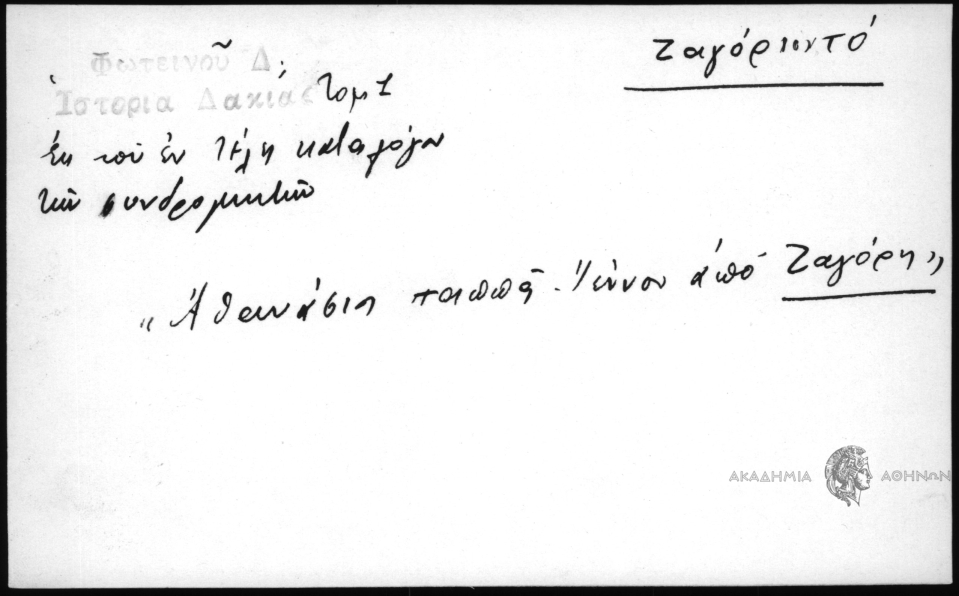 Ζαγόρι τό
Φωτεινοῦ Δ.
Ἱστορία Δακίας Τομ
ἐκ τοῦ ἐν τέλει καταλόγου
τῶν συνδρομητῶν
«Ἀθανάσιος παππᾶ ἀπό Ζαγόρη»
ΑΚΑΔΗΜΙΑ ΑΘΗΝΩΝ